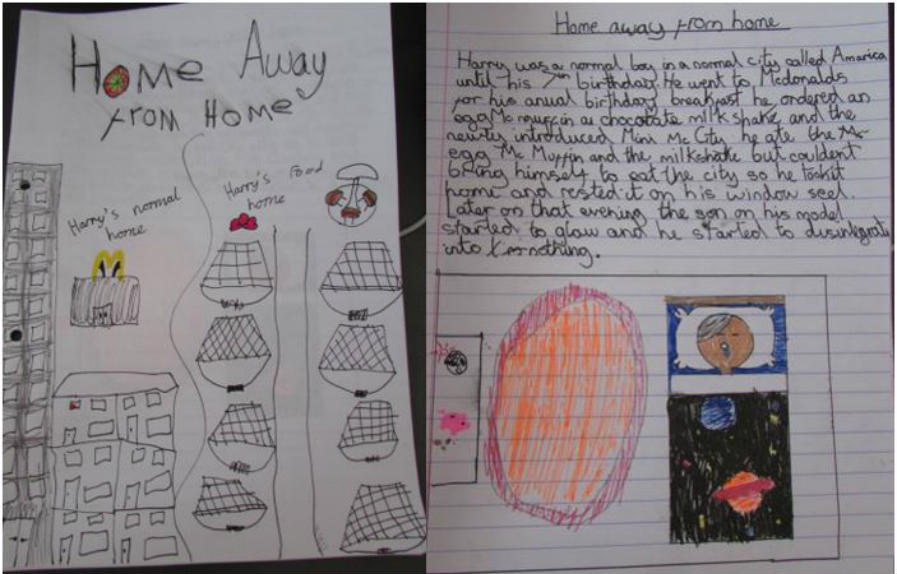 Home Away
from Home
Harry's normal
home
M
Harry's Food
home
Home away from home
Harry was a normal boy in a normal city called Amarica
until his 7th birthday. He went to Mcdonalds
for his anual birthday breakfast he ordered an
egg Mc muffin a chocolate milkshake and the
newly introduced Mini Mc City he ate the Mc
egg Mc Muffin and the milkshake but couldent
bring himself to eat the city so he tookit
home and rested it on his window seel.
Later on that evening the son on his model
started to glow and he started to disintegrate
into nothing.